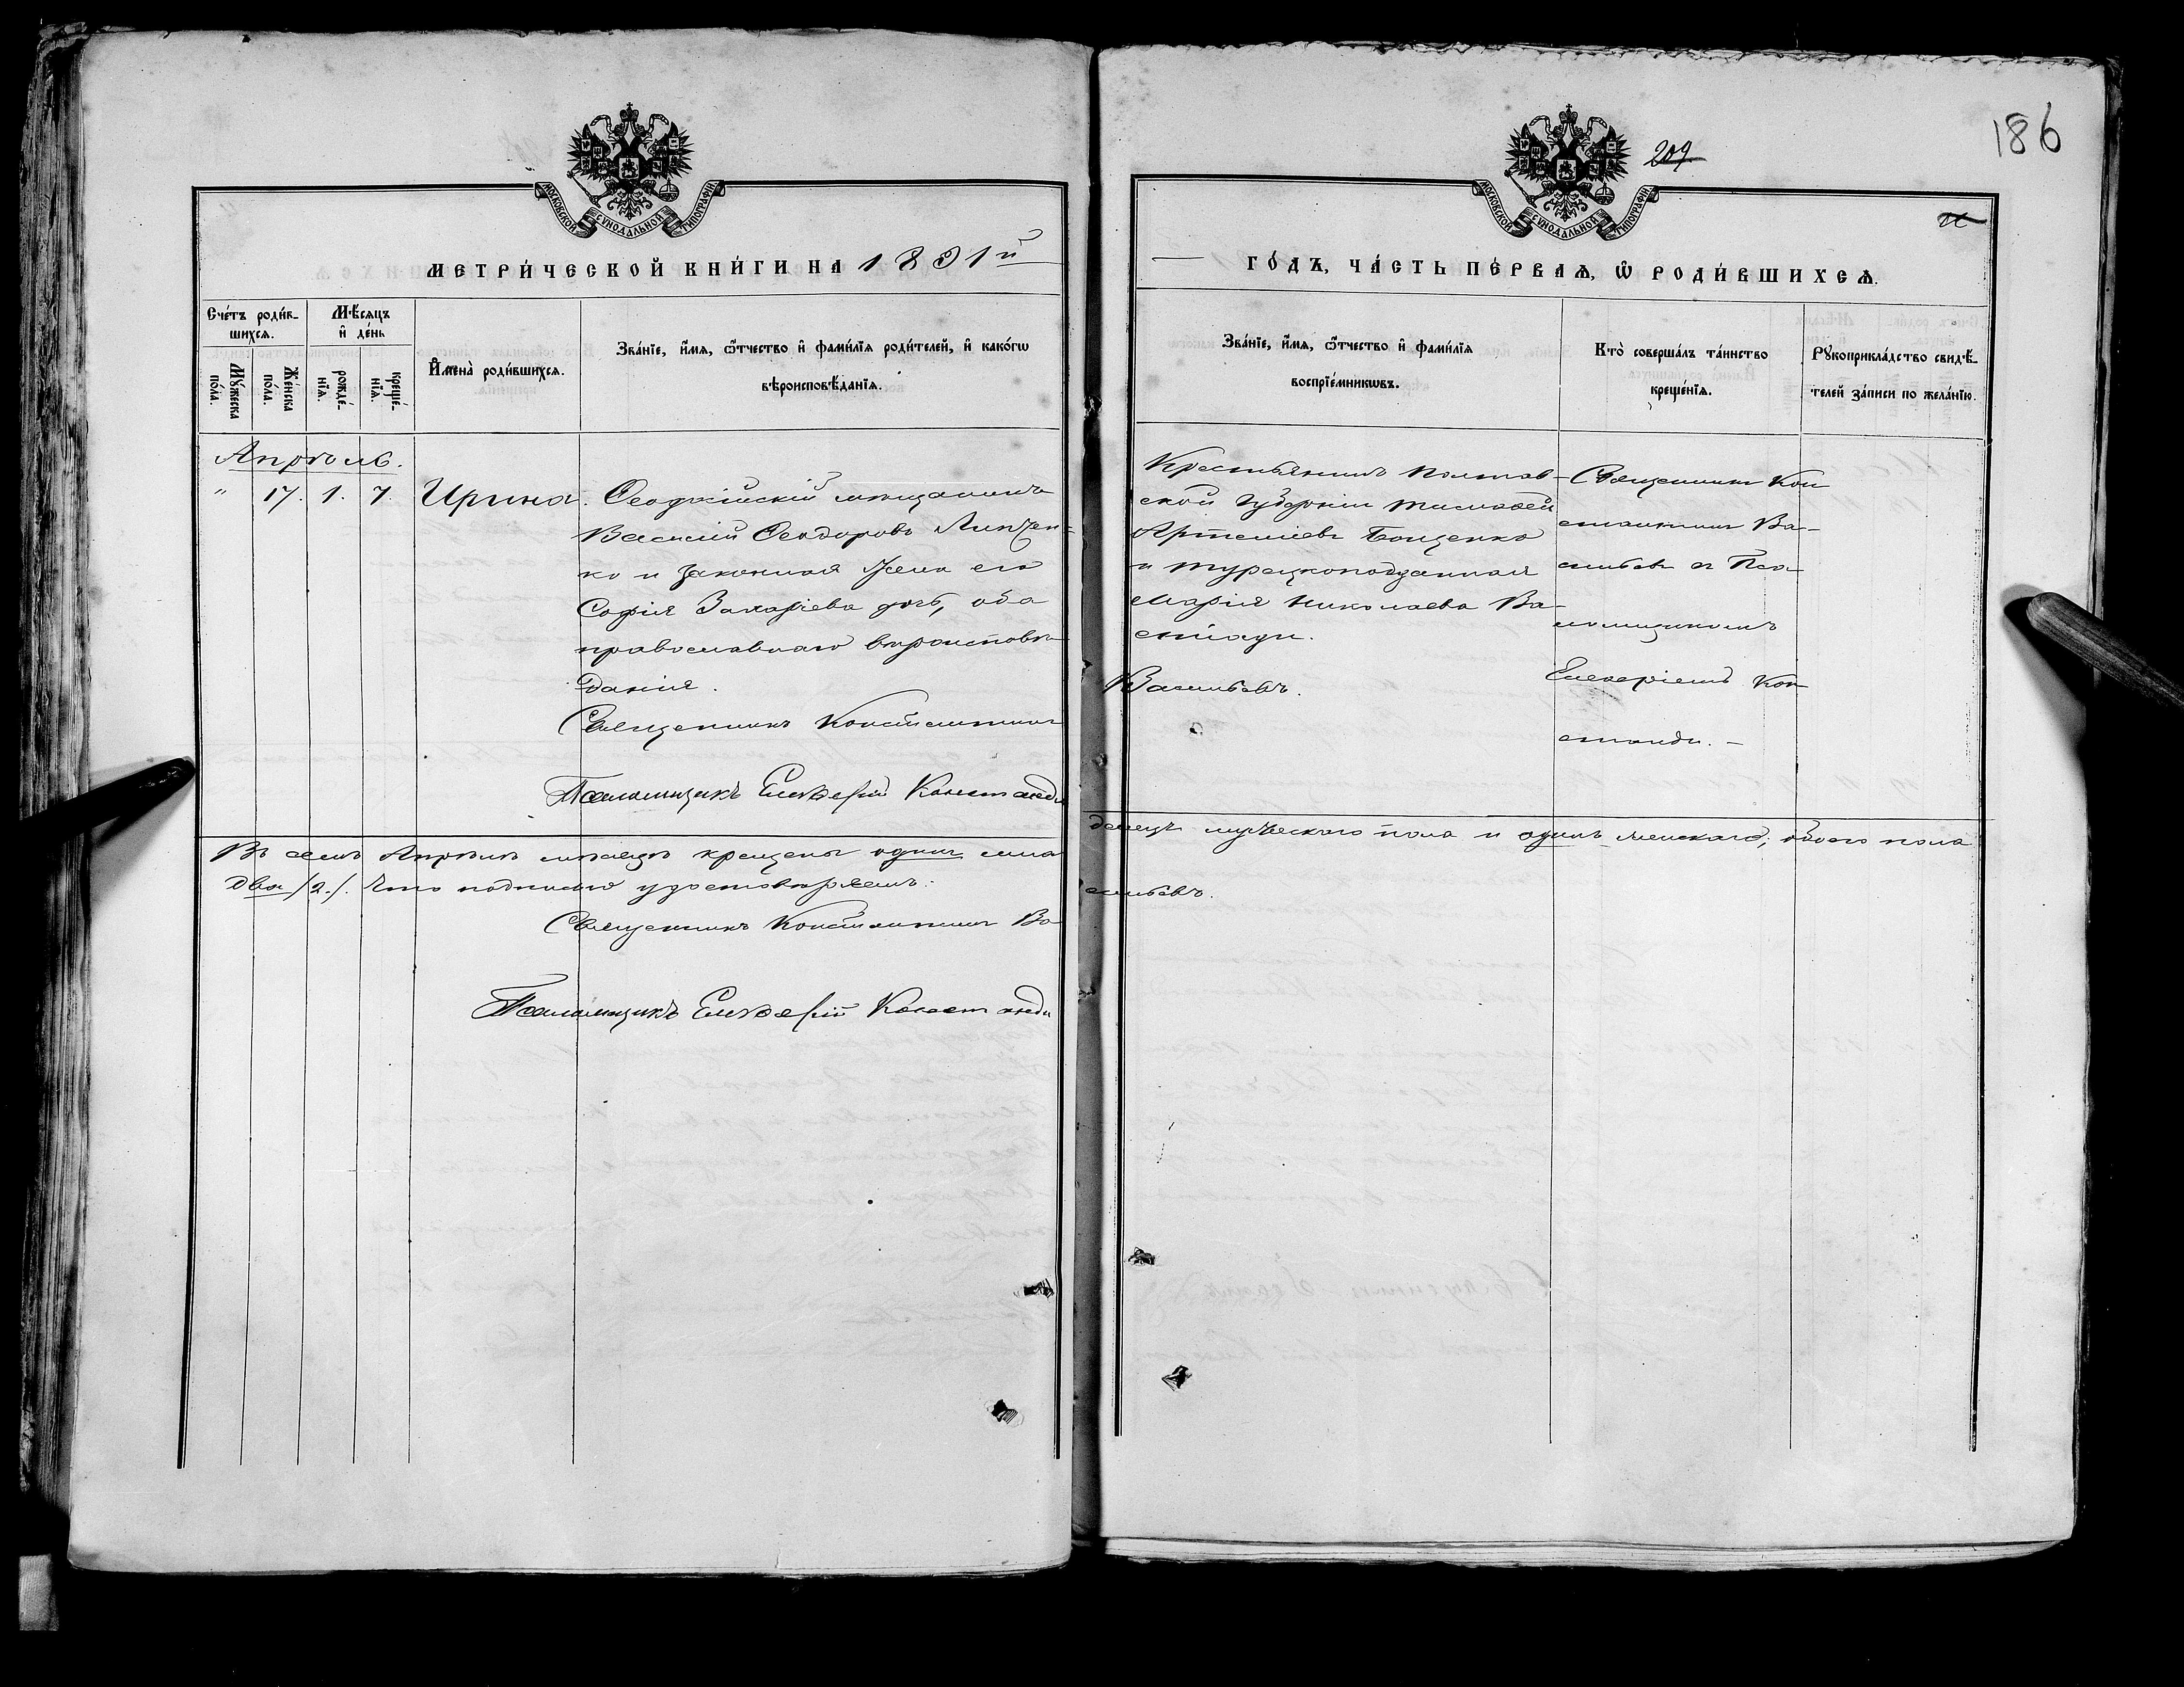 186
209
МОСКОВСКОЙ СѴНОДАЛЬНОЙ ТИПОГРАФІИ
МОСКОВСКОЙ СѴНОДАЛЬНОЙ ТИПОГРАФІИ
МЕТРИ́ЧЕСКОЙ КНИ́ГИ НА 1891й
ГО́ДЪ, ЧА́СТЬ ПЕ́РВАѦ, Ѿ РОДИ́ВШИХСѦ.
Счéтъ роди́в-
шихсѧ.
Мꙋ́жеска по́ла.
Же́нска по́ла.
Мѣ́сяцъ
и҆ де́нь
рожде́-
нїѧ.
креще́-
нїѧ.
И҆мена̀ роди́вшихсѧ.
Зва́нїе, и҆́мѧ, ѻ҆́тчество и҆ фами́лїѧ роди́телей, и҆ како́гѡ
вѣроисповѣ́данїѧ.
Зва́нїе, и҆́мѧ, ѻ҆́тчество и҆ фами́лїѧ
воспрїе́мникѡвъ.
Кто̀ соверша́лъ та́инство
креще́нїѧ.
Рꙋкоприкла́дство свидѣ́-
телей за́писи по жела́нїю.
Апрѣль.
" 17. 1. 7. Ирина.
Ѳеодосійскій мѣщанинъ
Василій Ѳеодоровъ Линчен-
ко и законная жена его
Софія Захаріева дочь, оба
православнаго вѣроисповѣ-
данія.
Священникъ Константинъ
Псаломщикъ Елевѳерій Констанди
Крестьянинъ Полтав-
ской губерніи Тимоѳей
Артеміевъ Бощенко
и турецкоподданная
Марія Николаева Ва-
силиади.
Васильевъ.
Священникъ Кон
стантинъ Ва-
сильевъ съ Пса-
ломщикомъ
Елевѳеріемъ Кон
станди. –
Въ семъ Апрѣлѣ мѣсяцѣ крещены одинъ мла
денецъ мужескаго пола и одинъ женскаго, обоего пола
два /2./. Что подписью удостовѣряемъ:
Священникъ Константинъ Ва
сильевъ.
Псаломщикъ Елевѳерій Констанди